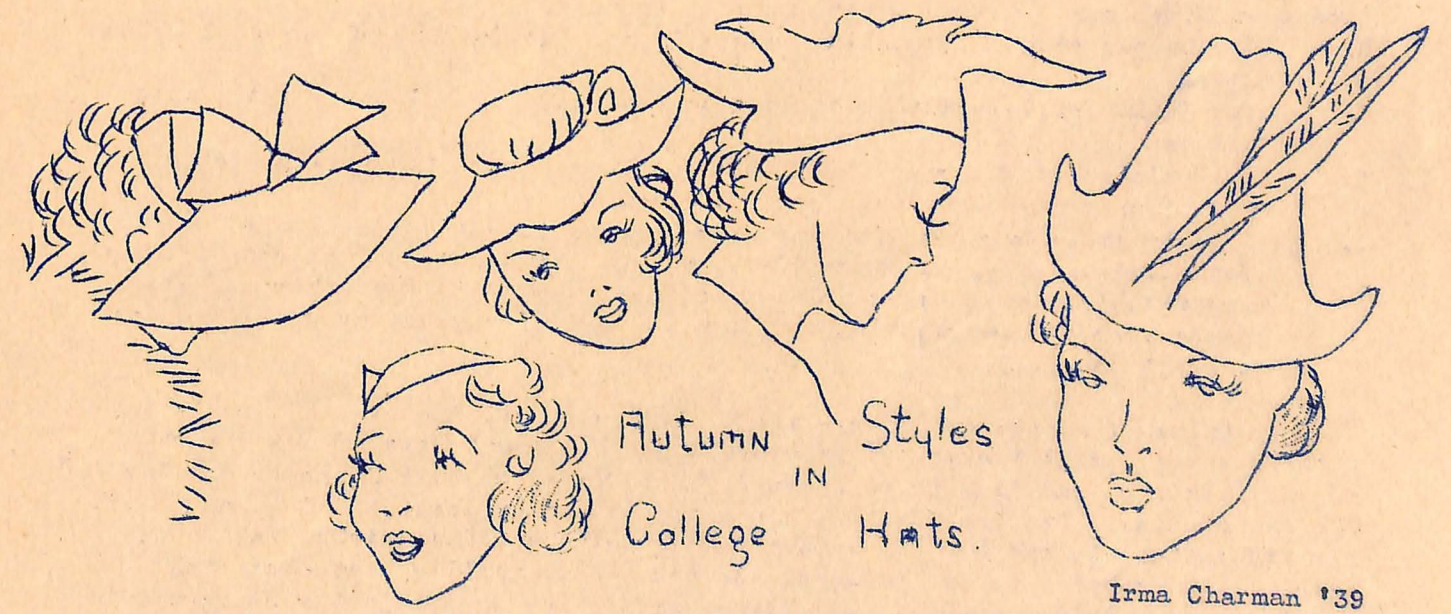 Autumn Styles
IN
College Hats.
Irma Charman '39